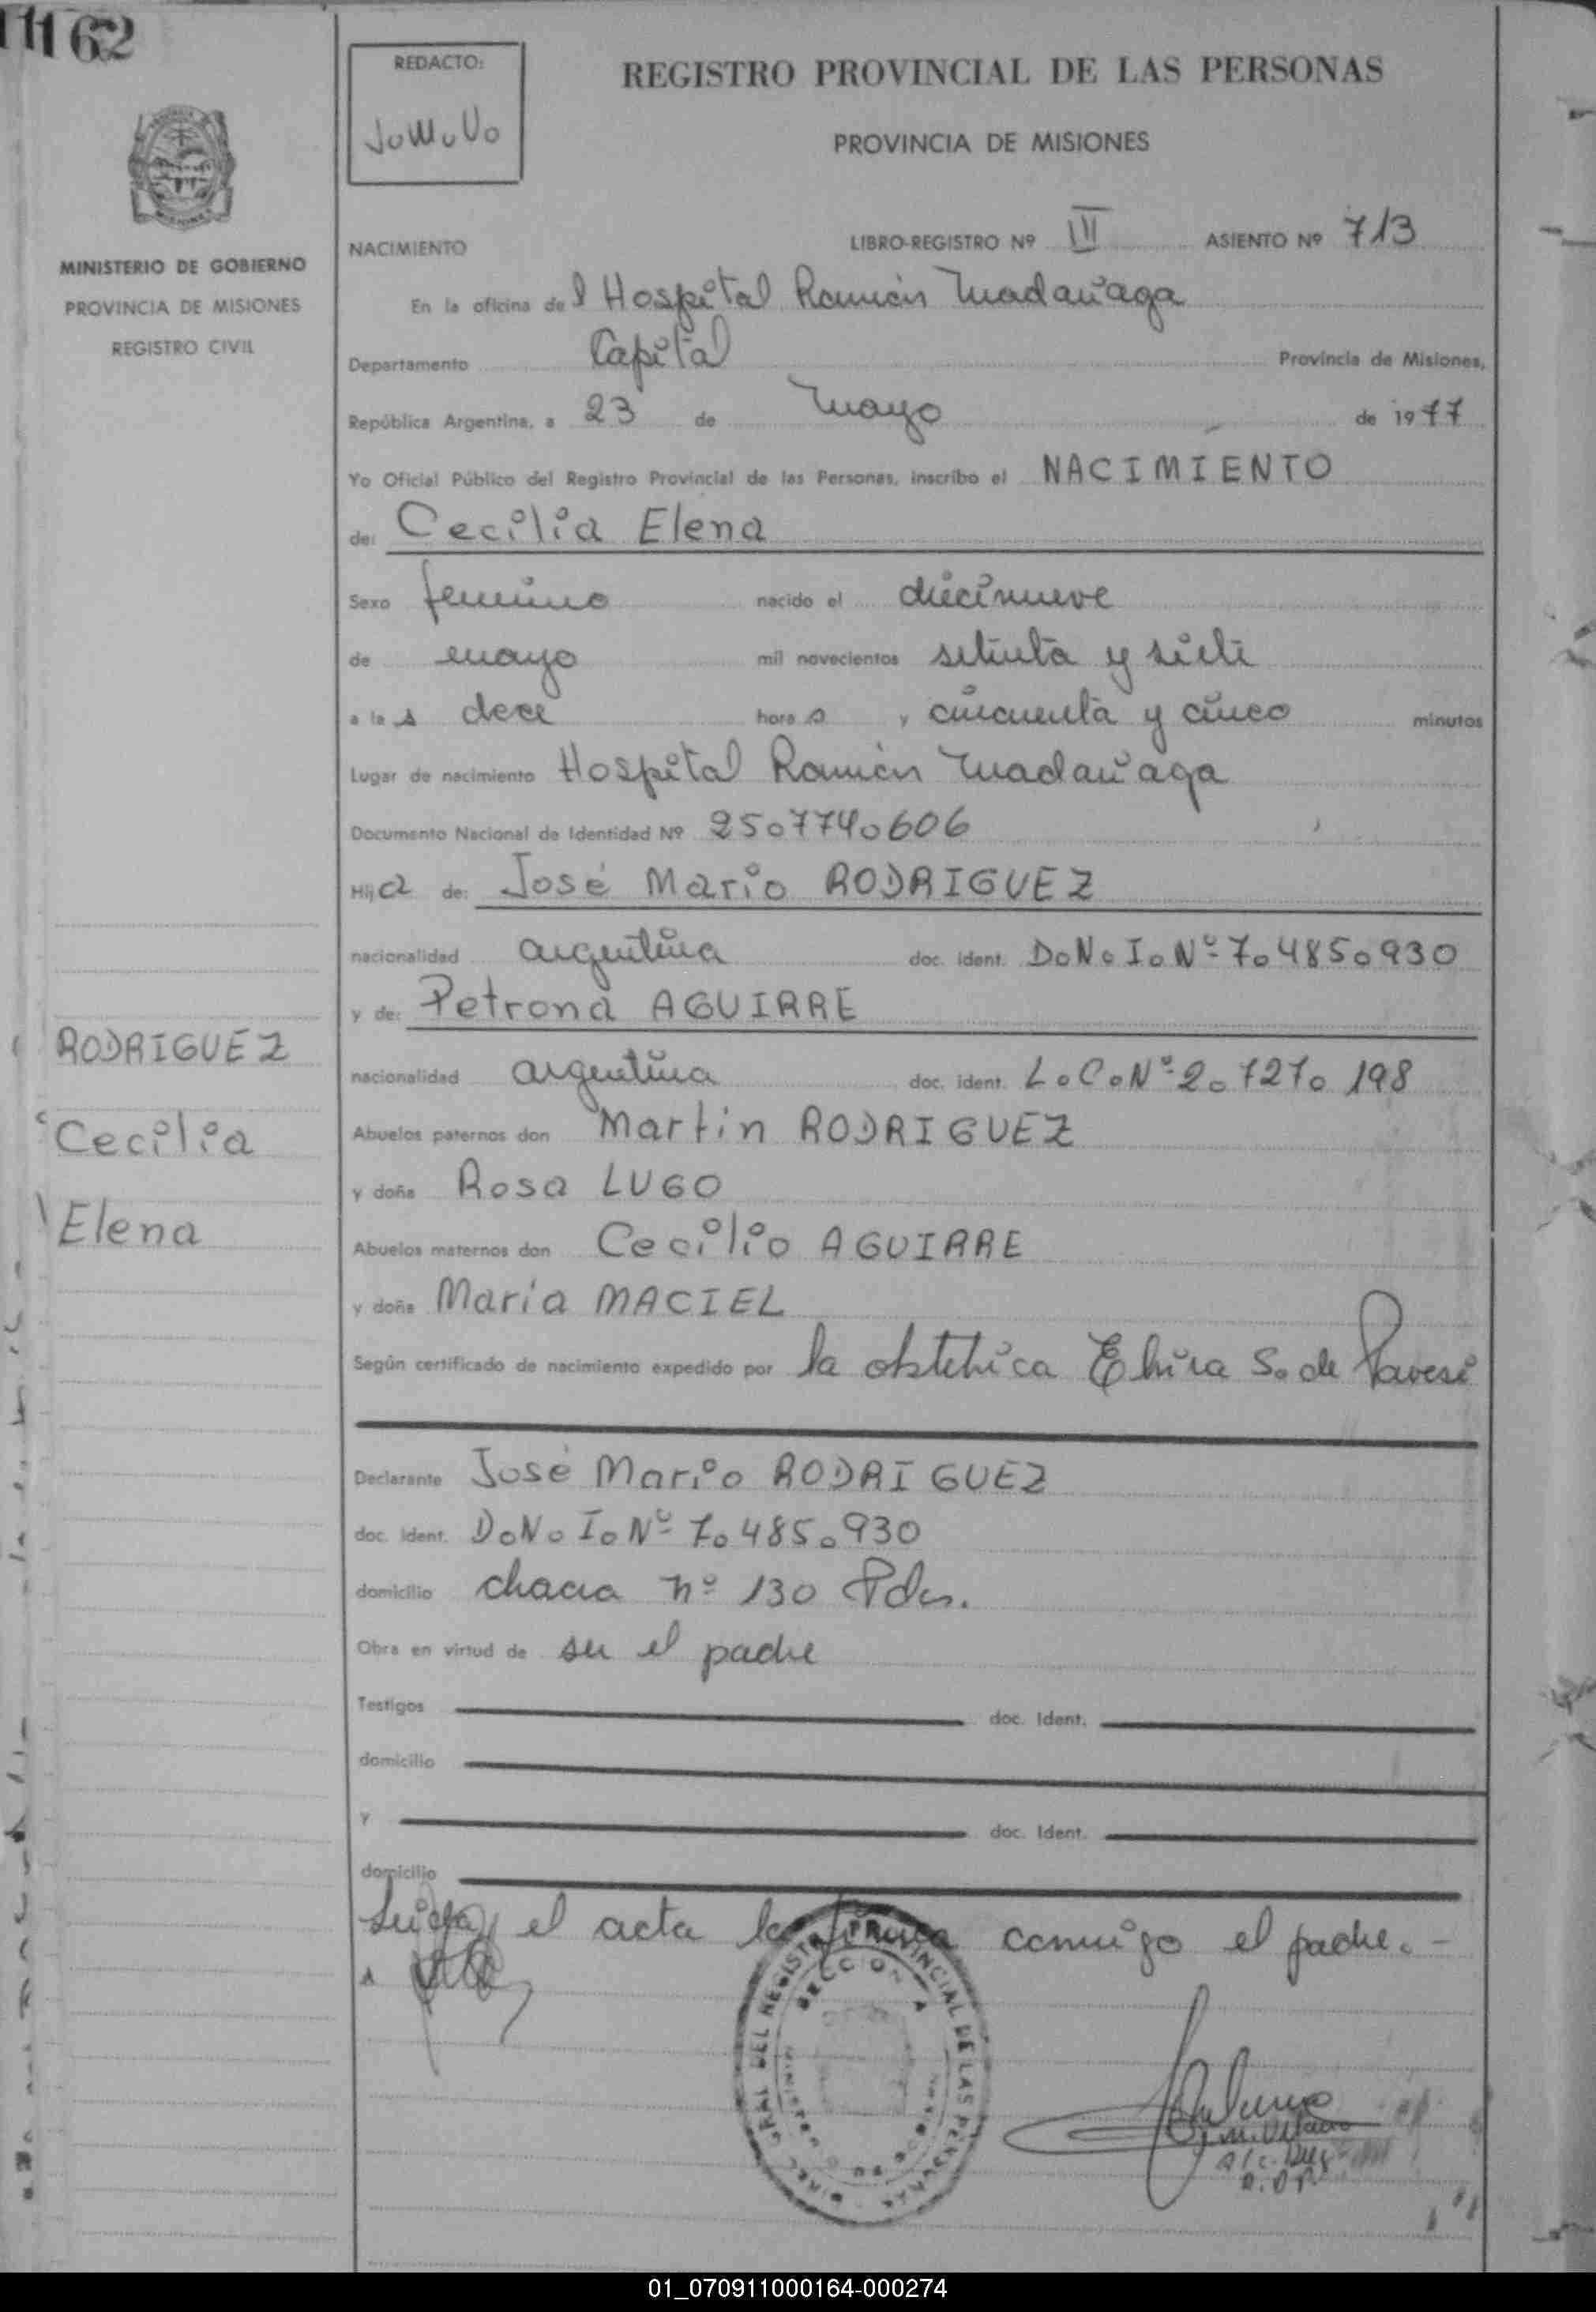 1162
REDACTO:
J.M.V.
REGISTRO PROVINCIAL DE LAS PERSONAS
PROVINCIA DE MISIONES
MINISTERIO DE GOBIERNO
PROVINCIA DE MISIONES
REGISTRO CIVIL
NACIMIENTO LIBRO-REGISTRO Nº III ASIENTO Nº 713
En la oficina del Hospital Ramón Madariaga
Departamento Capital Provincia de Misiones,
República Argentina, a 23 de mayo de 1977
Yo Oficial Público del Registro Provincial de las Personas, inscribo el NACIMIENTO
de: Cecilia Elena
Sexo femenino nacido el diecinueve
de mayo mil novecientos setenta y siete
a las doce horas y cincuenta y cinco minutos
Lugar de nacimiento Hospital Ramón Madariaga
Documento Nacional de Identidad Nº 25.774.606
Hija de: José Mario RODRIGUEZ
nacionalidad argentina doc. ident. D.N.I.Nº 7.485.930
y de: Petrona AGUIRRE
nacionalidad argentina doc. ident. L.C.Nº 2.727.198
Abuelos paternos don Martin RODRIGUEZ
y doña Rosa LUGO
Abuelos maternos don Cecilio AGUIRRE
y doña Maria MACIEL
Según certificado de nacimiento expedido por la obstetrica Elvira S. de Pavesi
RODRIGUEZ
Cecilia
Elena
Declarante José Mario RODRIGUEZ
doc. ident. D.N.I.Nº 7.485.930
domicilio chacra nº 130 Pdas.
Obra en virtud de ser el padre
Testigos doc. Ident.
domicilio
y doc. Ident.
domicilio
Leida el acta la firma conmigo el padre.-
DIREC. GRAL. DEL REGISTRO PROVINCIAL DE LAS PERSONAS
SECCION
01_070911000164-000274